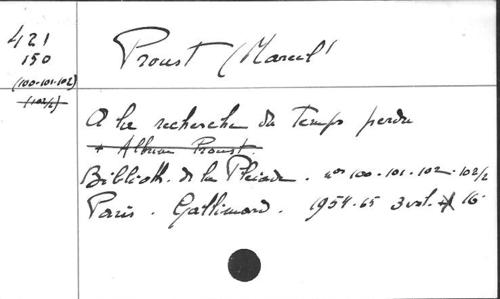 421
150
(100-101-102)
(102/2)
Proust (Marcel)
A la recherche du Temps perdu
+ Album Proust
Biblioth. de la Pléiade. nos 100-101-102-102/2
Paris. Gallimard. 1954-65 3 vol. 16